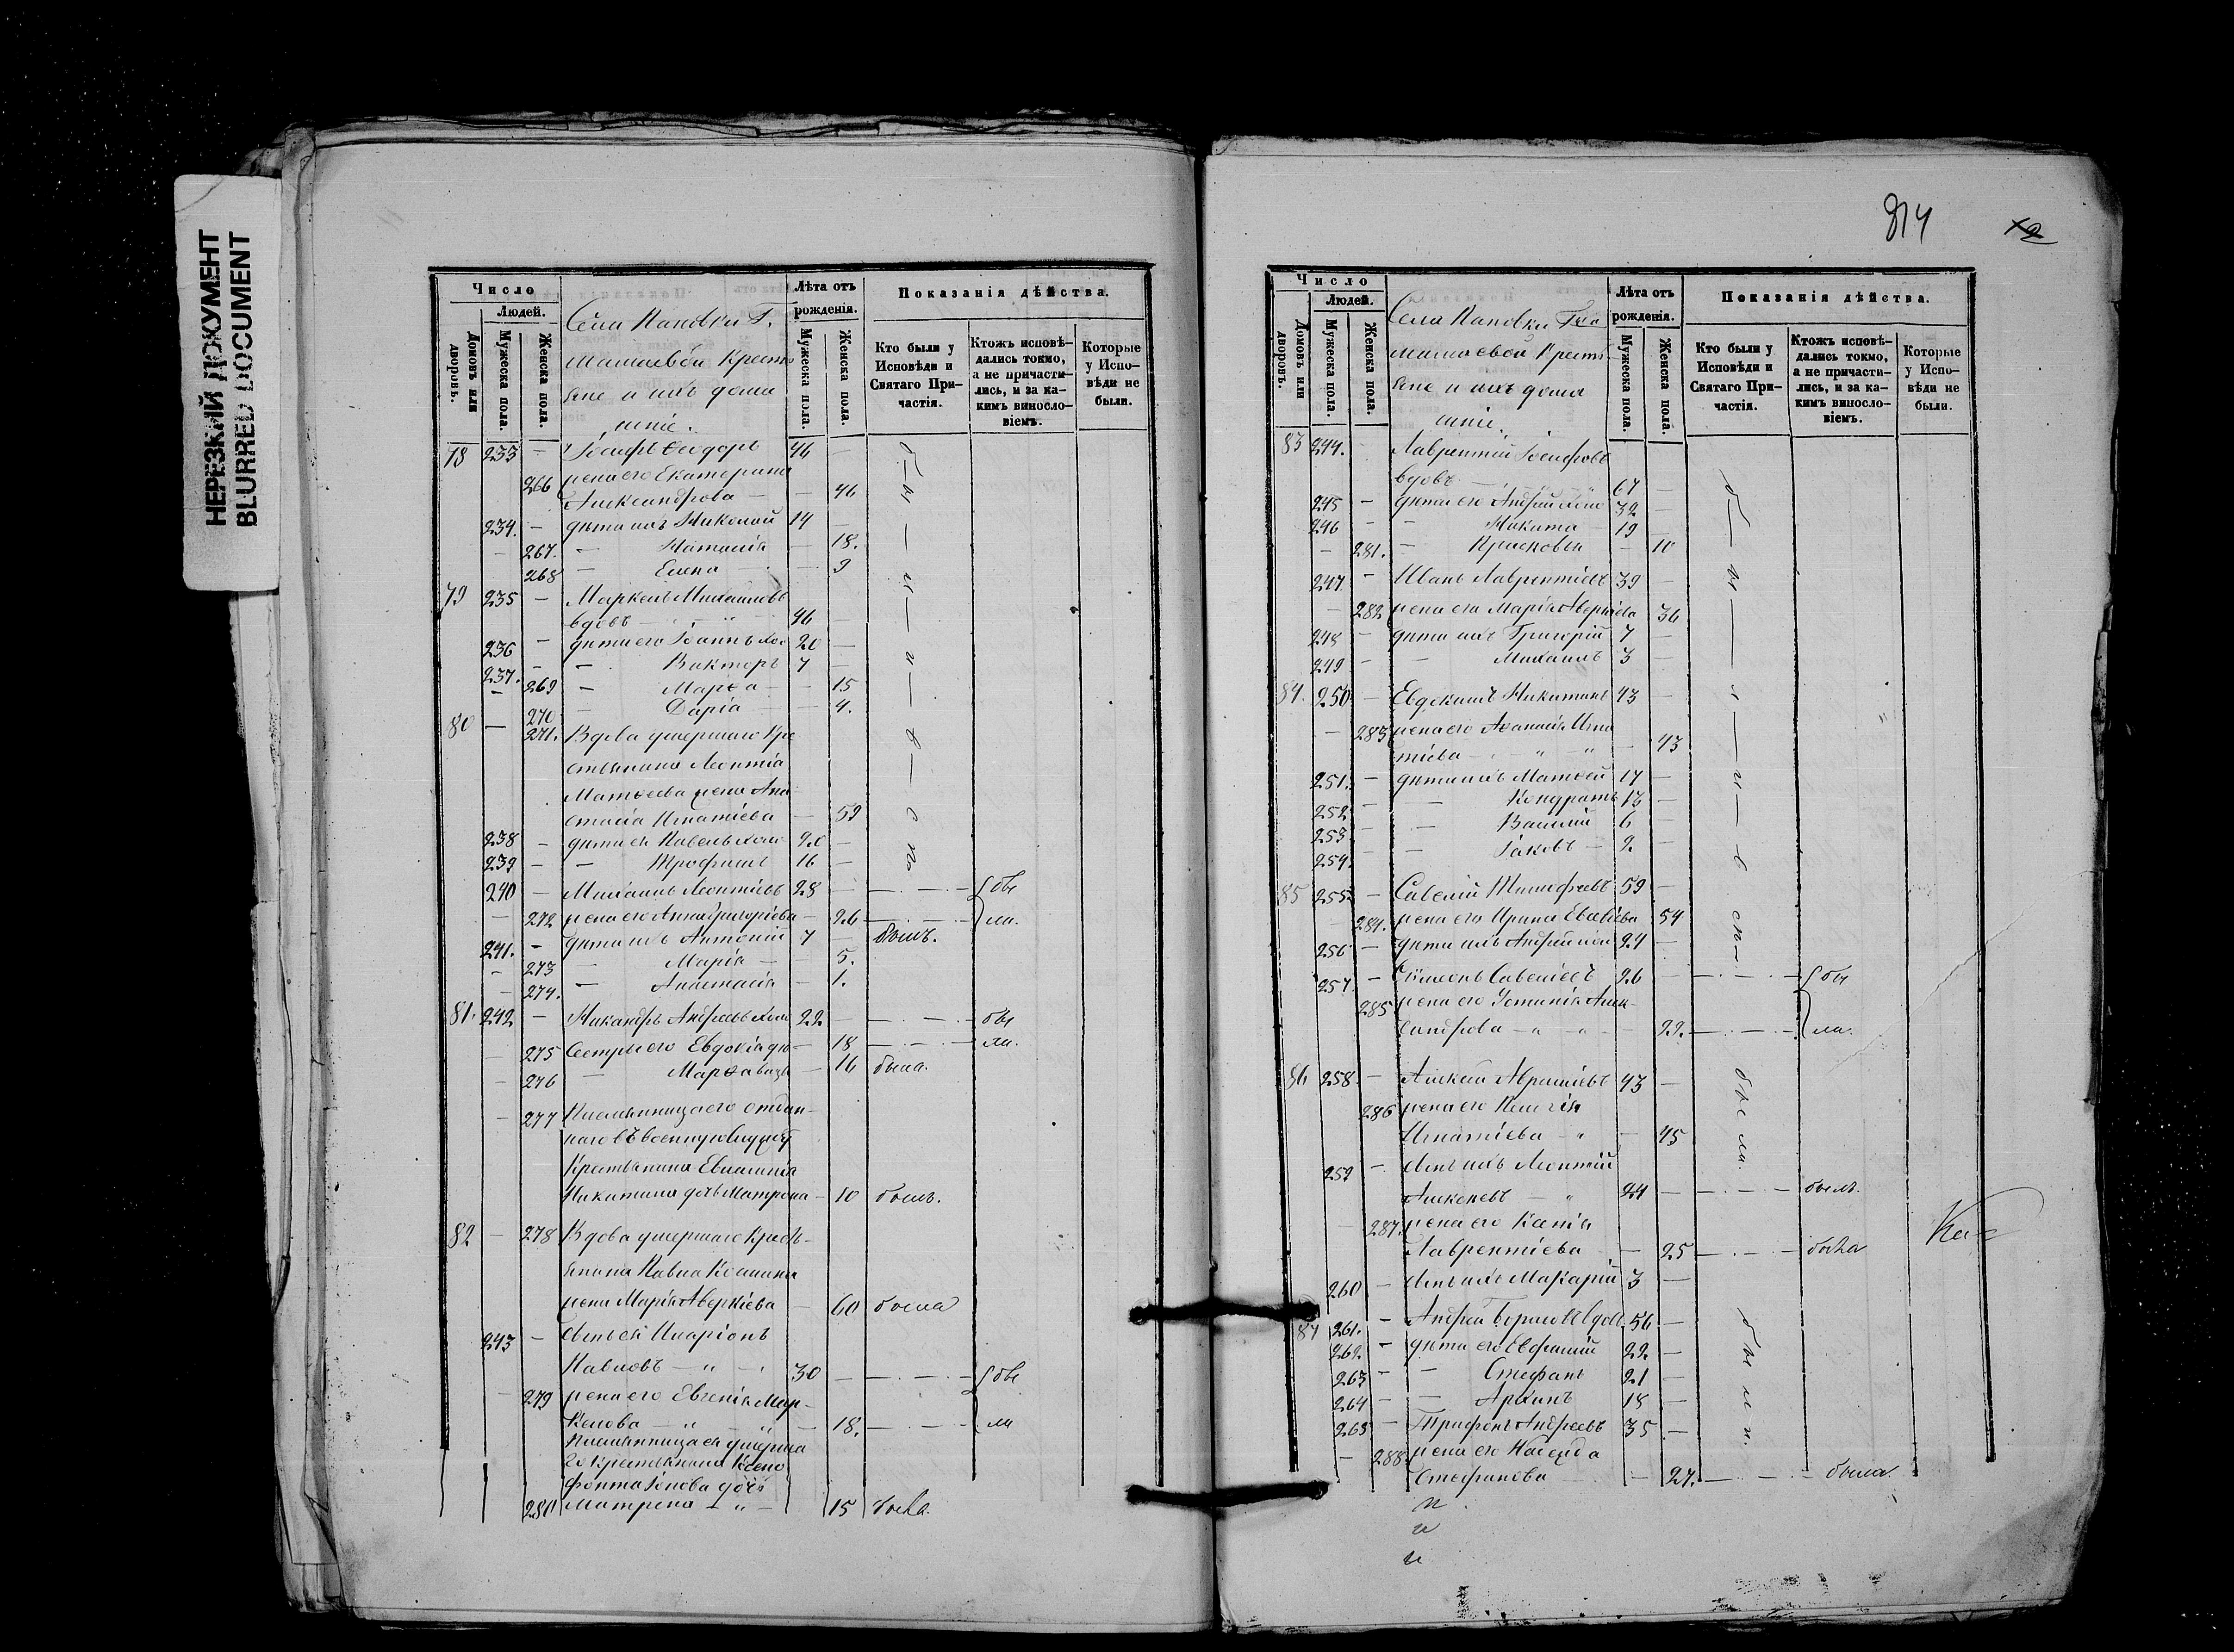 НЕРЕЗКИЙ ДОКУМЕНТ
BLURRED DOCUMENT
Число
Людей.
Домовъ или дворовъ.
Мужеска пола.
Женска пола.
Села Пановки Г.
машаевой Крестъ
яне и ихъ дома
шніе.
Лѣта отъ рожденія.
Мужеска пола.
Женска пола.
Показанія дѣйства.
Кто были у Исповѣди и Святаго Причастія.
Ктожъ исповѣдались токмо, а не причастились, и за какимъ винословіемъ.
Которые у Исповѣди не были.
78 233 – Іосифъ Ѳеодоръ 46 –
266 жена его Екатерина
Александрова – – 46
234. – дѣти ихъ Николай 14 –
– 267. – Наталія – 18.
268 – Елена – 9
79 235 – Маркелъ Михайловъ
вдовъ – 46 –
236 – дѣти его Іоаннъ хол 20 –
237. – – Викторъ 7 –
– 269 – Марѳа – – 15
270 – Дарія – – 4.
80 – 271. Вдова умершаго Кре
стьянина Леонтія
Матѳеева жена Ана
стасія Игнатіева – 59
238 – дѣти ея Павелъ холо 20 –
239 – – Трофимъ 16 –
240 – Михаилъ Леонтіевъ 28 – – . – . – бы
– 272 жена его Анна Григоріева – 26 – . – . – ли.
241. – дѣти ихъ Антоній 7 – былъ.
– 273 – Марія – 5.
– 274. – Анастасія – 1.
81. 242 – Никандръ Андреевъ холо 22 – – . – . – бы
– 275 Сестры его Евдокія дѣ – 18 – . – . – ли.
– 276 – Марѳа вица – 16 была.
– 277 Племянница его отдан-
наго въ военную службу
Крестьянина Евлампія
Никитина дочь Матрона – 10 былъ.
82 – 278 Вдова умершаго Кресть-
янина Павла Космина
жена Марія Аверкіева – 60 была
243 – Сынъ ея Иларіонъ
Павловъ – „ – 30 – – . – . – бы
– 279 жена его Евгенія Мар-
келова – „ – 18. – . – . – ли
Племянница ея умерша
го Крестьянина Ксено
фонта Іонова дочь
280 Матрена – „ – 15 была.
814
12
Число
Людей.
Домовъ или дворовъ.
Мужеска пола.
Женска пола.
Села Пановки Гра
машаевой Кресть
яне и ихъ дома
шніе.
Лѣта отъ рожденія.
Мужеска пола.
Женска пола.
Показанія дѣйства.
Кто были у Исповѣди и Святаго Причастія.
Ктожъ исповѣдались токмо, а не причастились, и за какимъ винословіемъ.
Которые у Исповѣди не были.
83 244. Лаврентій Іосифовъ
вдовъ – 67 –
245 – дѣти его Андрей холо 32 –
246 – – Никита – 19 –
– 281. – Прасковья – 10
247 – Иванъ Лаврентіевъ 39 –
– 282 жена его Марія Аверкіева 36
248 – дѣти ихъ Григорій 7 –
249 – – Михаилъ 3 –
84. 250 – Евдокимъ Никитинъ 43 –
– 283 жена его Аѳанасія Игна
тіева – „ – „ – 43
251. – дѣти ихъ Матѳей 17 –
252 – – Кондратъ 13 –
253 – – Василій 6 –
254. – – Іаковъ – 2 –
85 255. – Савелій Тимофеевъ 59 –
– 284. жена его Ирина Евсевіева 54
256 – дѣти ихъ Андрей хол 24 –
257. – Симеонъ Савеліевъ 26 – – . – . – бы
285 жена его Устинія Алек-
сандрова – „ – „ – 22. – . – . – ли.
86 258. – Алексѣй Аврамievъ 43 –
286 жена его Пелагія
Игнатіева – „ – 45
259 – Сынъ ихъ Леонтій
Алексѣевъ – „ 24 – – . – . – былъ.
– 287. жена его Ксенія
Лаврентіева – 25 – . – . – была
260 – Сынъ ихъ Макарій 3 –
87 261. – Андрей Борисовъ вдов. 56 –
262. – дѣти его Евфимій 22 –
263 – – Стефанъ 21 –
264 – – Архипъ 18 –
265 – Трифонъ Андреевъ 35 –
– 288. жена его Надежда
Стефанова – 27. – . – . – была.